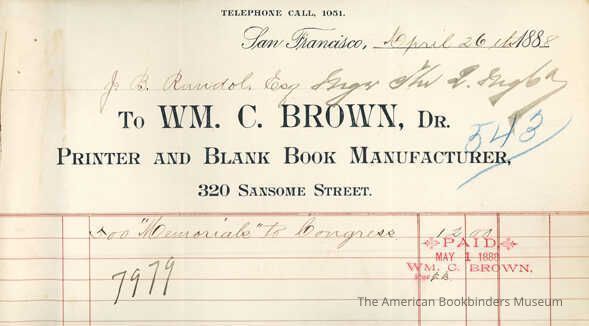 TELEPHONE CALL, 1051.
San Francisco, April 26th 1888
J. B. Randol, Esq Mngr The Q.
To WM. C. BROWN, Dr.
543
PRINTER AND BLANK BOOK MANUFACTURER,
320 SANSOME STREET.
"Memorials" to Congress 12.00
PAID
MAY 1 1888
WM. C. BROWN.
Per
7979
The American Bookbinders Museum